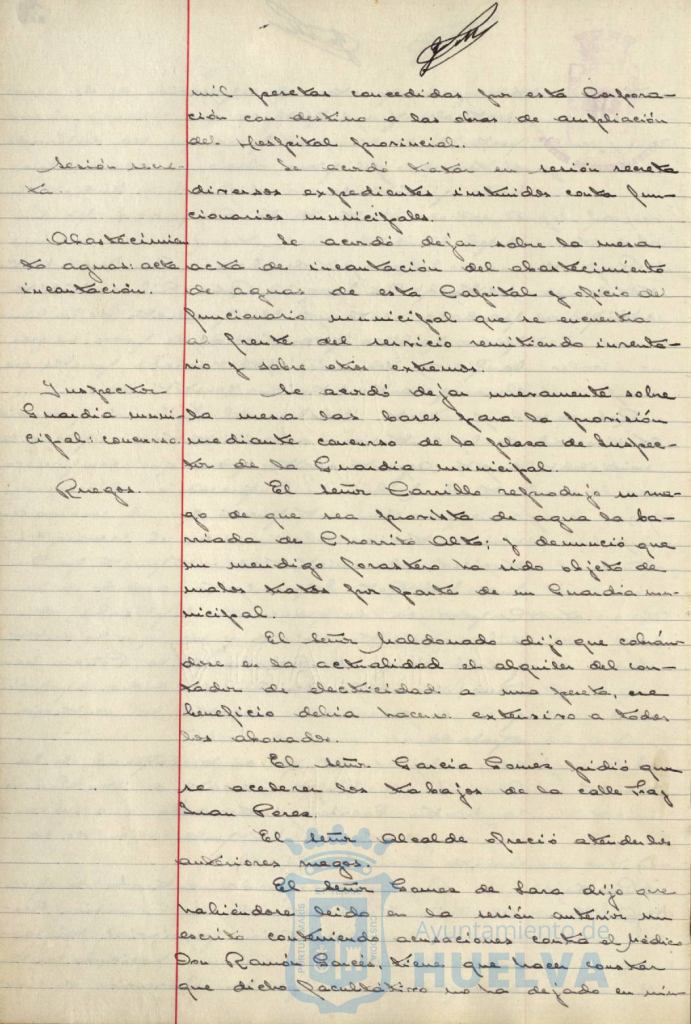 mil pesetas concedidas por esta Corpora-
ción con destino a las obras de ampliación
del Hospital provincial.
Sesión secre-
ta.
Se acordó tratar en sesión secreta
diversos expedientes instruidos contra fun-
cionarios municipales.
Abastecimien
to aguas: acta
incautación.
Se acordó dejar sobre la mesa
acta de incautación del abastecimiento
de aguas de esta Capital y oficio del
funcionario municipal que se encuentra
al frente del servicio remitiendo inventa-
rio y sobre otros extremos.
Inspector
Guardia muni-
cipal: concurso.
Se acordó dejar nuevamente sobre
la mesa las bases para la provisión
mediante concurso de la plaza de Inspec-
tor de la Guardia municipal.
Ruegos.
El señor Carrillo reprodujo su rue-
go de que sea provista de agua la ba-
rriada de Chorrito Alto; y denunció que
un mendigo forastero ha sido objeto de
malos tratos por parte de un Guardia mu-
nicipal.
El señor Maldonado dijo que cobrán-
dose en la actualidad el alquiler del con-
tador de electricidad a una peseta, ese
beneficio debía hacerse extensivo a todos
los abonados.
El señor García Gomez pidió que
se aceleren los trabajos de la calle Fray
Juan Perez.
El señor Alcalde ofreció atender los
anteriores ruegos.
El señor Gomez de Lara dijo que
habiéndose leido en la sesión anterior un
escrito conteniendo acusaciones contra el Médico
Don Ramón Garcés, tiene que hacer constar
que dicho facultativo no ha dejado en nin-
Ayuntamiento de
HUELVA